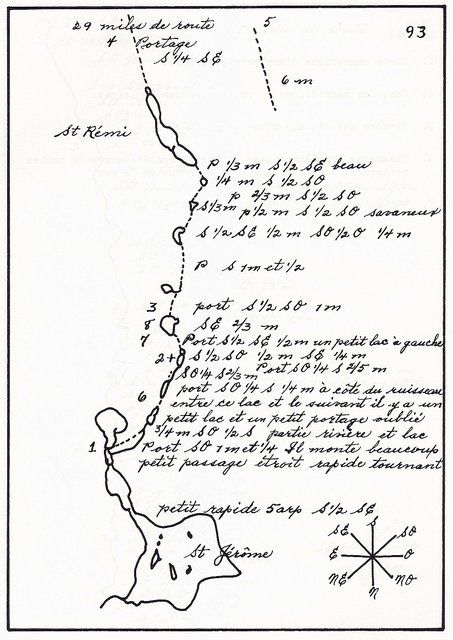 29 miles de route
5
93
4 Portage
S 1/4 SE
6 m
St Rémi
P 1/3 m S 1/2 SE beau
1/4 m S 1/2 SO
p 2/3 m S 1/2 SO
S 1/3 m p 1/2 m S 1/2 SO savaneux
S 1/2 SE 1/2 m SO 1/2 O 1/4 m
P S 1 m et 1/2
3 port S 1/2 SO 1 m
8 SE 2/3 m
7 Port S 1/2 SE 1/2 m un petit lac à gauche
2+ S 1/2 SO 1/2 m SE 1/4 m
SO 1/4 S 2/3 m Port SO 1/4 S 2/5 m
port SO 1/4 S 1/4 m à côté du ruisseau
6 entre ce lac et le suivant il y a un
petit lac et un petit portage oublié
3/4 m SO 1/2 S partie rivière et lac
1 Port SO 1 m et 1/4 Il monte beaucoup
petit passage étroit rapide tournant
petit rapide 5 arp S 1/2 SE
St Jérôme
S
SE SO
E O
NE NO
N